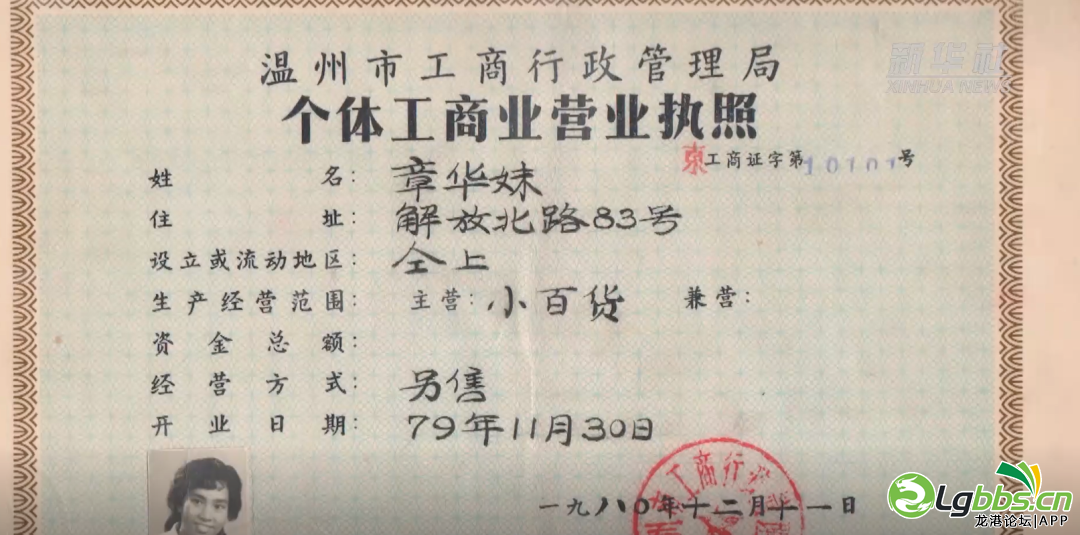 新华社
XINHUA NEWS
温州市工商行政管理局
个体工商业营业执照
东工商证字第10101号
姓名：章华妹
住址：解放北路83号
设立或流动地区：仝上
生产经营范围：主营：小百货 兼营：
资金总额：
经营方式：另售
开业日期：79年11月30日
工商行政
一九八〇年十二月十一日
Lgbbs.cn
龙港论坛|APP